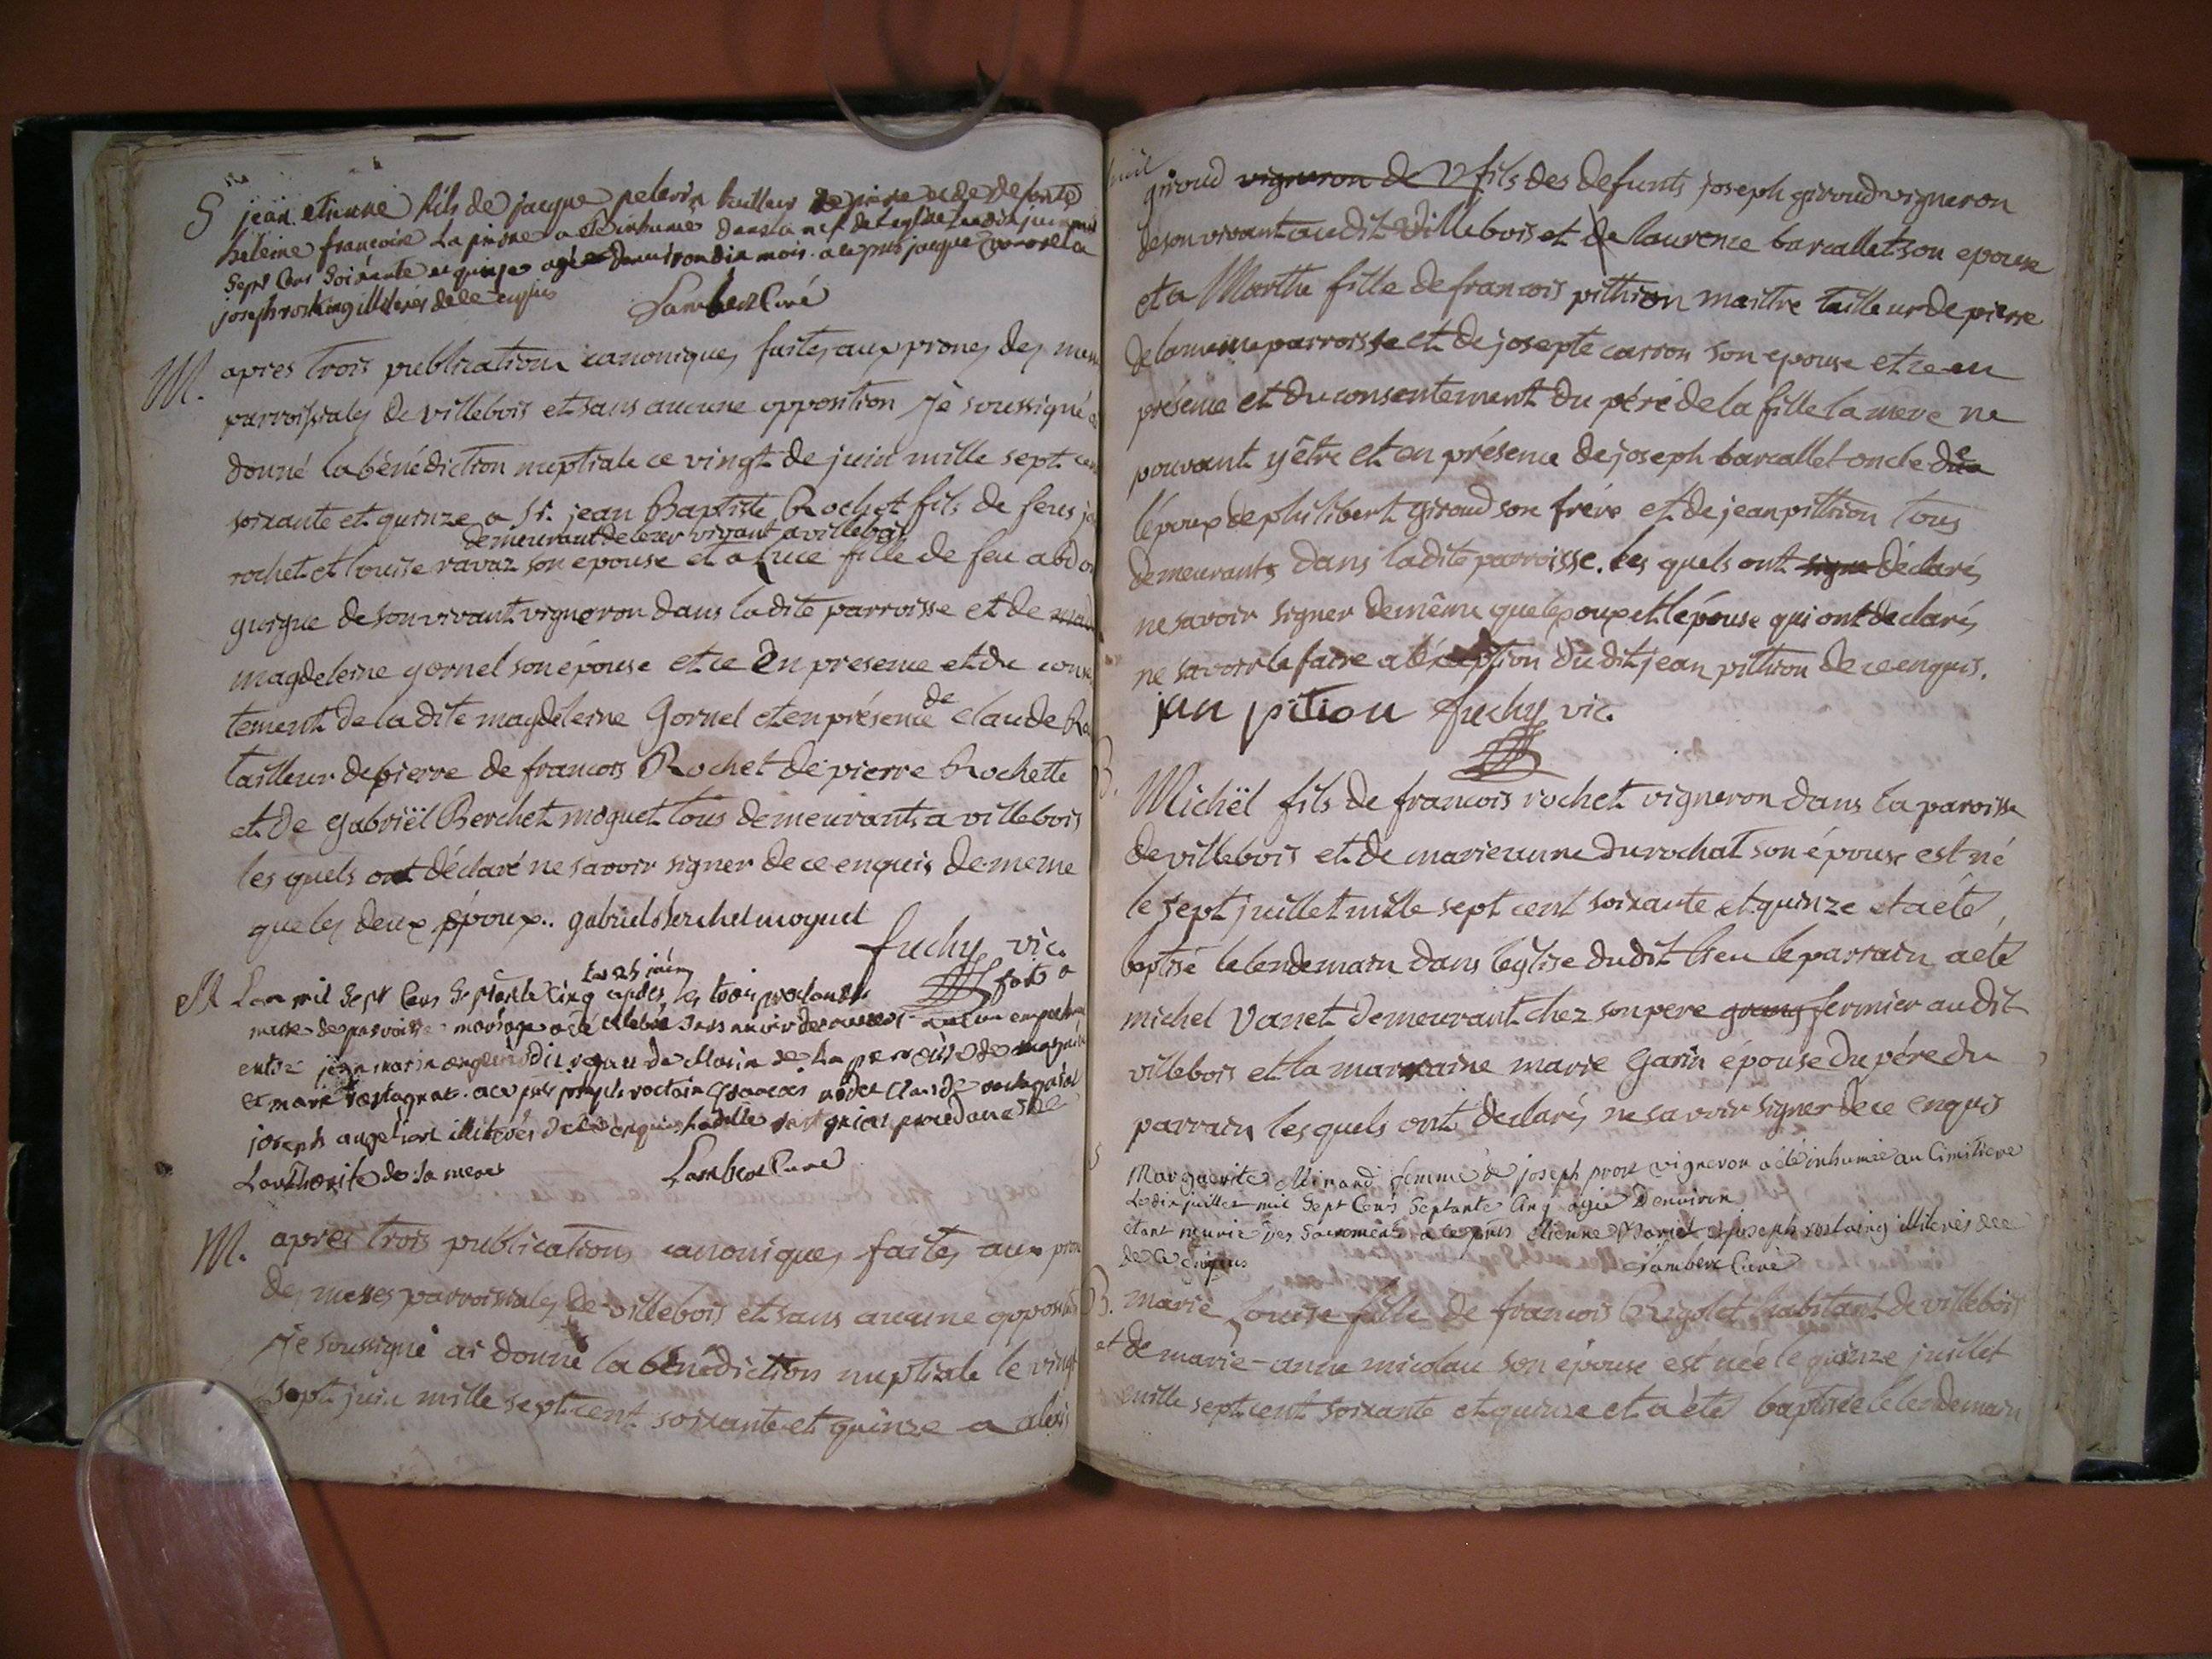 S jean etienne fils de jacque pelerin tailleur de pierre et de defunte
heleine francoise La pierre a été inhumé dans la nef de Leglise Le dix juin mil
Sept Cens Soixante et quinze agé denviron dix mois. a ce pns jacque
joseph rostaing illiterés de ce enquis Lambert Curé
M. apres trois publications canoniques faites aux prones des mess
parroissiales de villebois et sans aucune opposition je soussigné ai
donné la bénédiction nuptiale ce vingt de juin mille sept cen
soixante et quinze a Sr. jean Baptiste Rochet fils de feus
demeurant de leur vivant a villebois
rochet et louise ravaz son epouse et a Luce fille de feu abdon
guigue de son vivant vigneron dans la dite parroisse et de
magdeleine gornel son épouse et ce en presence et du conse
tement de la dite magdeleine Gornel et en présence de claude Ro
tailleur de pierre de francois Rochet de pierre Rochette
et de gabriël Berchet moquet tous demeurants a villebois
les quels ont déclaré ne savoir signer de ce enquis de meme
que les deux époux.. gabriel berchet moquet
fuchy vic.
M Lan mil Sept Cens Septante Cinq Le 25 juin apres les trois proclama
messe de parroisse mariage a été célébré sans avoir decouvert aucun empechem
entre jean marin de Marin de La
et marie rostagnat. a ce pns joseph francois Claude
joseph augetion illiterés de ce enquis procedane de
Lauthorité de sa mere Lambert Curé
M. apres trois publications canoniques faites aux pron
des messes parroissiales de villebois et sans aucune opposit
je soussigné ai donné la bénédiction nuptiale le vingt
sept juin mille sept cent soixante et quinze a alexis
giroud vigneron de V fils des defunts joseph giroud vigneron
de son vivant audit Villebois et de laurence barcallet son epouse
et a Marthe fille de francois pithion maitre tailleur de pierre
de la meme parroisse et de josepte carron son epouse et ce en
présence et du consentement du pére de la fille la mere ne
pouvant y être et en présence de joseph barcallet oncle de
l'époux de philibert giroud son frére et de jean pithion tous
demeurants dans ladite parroisse. les quels ont signe déclarés
ne savoir signer de même que lepoux et lépouse qui ont declarés
ne savoir le faire a léxception du dit jean pithion de ce enquis.
jan pition fuchy vic.
B. Michël fils de francois rochet vigneron dans la paroisse
de villebois et de marieanne durochat son épouse est né
le sept juillet mille sept cent soixante et quinze et a été
baptisé le lendemain dans léglise dudit lieu le parrain a été
michel Vanet demeurant chez son pere grang fermier audit
villebois et la marraine marie Garin épouse du pére du
parrain lesquels ont declarés ne savoir signer de ce enquis
S Marguerite Minand femme de joseph prost vigneron a été inhumée au Cimitiere
Le dix juillet mil Sept Cens Septante Cinq agée Denviron
etant munie des Sacrements a ce pnts étienne Mariet et joseph rostaing illiterés
de ce enquis Lambert Curé
B. marie Louise fille de francois Rigolet habitant de villebois
et de marie-anne micolau son épouse est née le quinze juillet
mille sept cent soixante et quinze et a été baptisée le lendemain